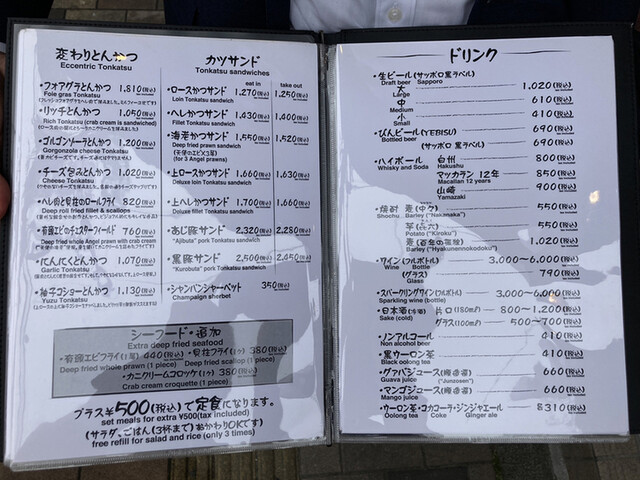 変わりとんかつ
Eccentric Tonkatsu
・フォアグラとんかつ 1,810(税込)
Foie gras Tonkatsu
・リッチとんかつ 1,050(税込)
Rich Tonkatsu (crab cream is sandwiched)
・ゴルゴンゾーラとんかつ 1,200(税込)
Gorgonzola cheese Tonkatsu
・チーズ包みとんかつ 1,020(税込)
Cheese Tonkatsu
・ヘレ肉と貝柱のロールフライ 820(税込)
Deep roll fried fillet & scallops
・有頭エビのチェスターフィールド 760(税込)
Deep fried whole Angel prawn with crab cream
・にんにくとんかつ 1,070(税込)
Garlic Tonkatsu
・柚子コショーとんかつ 1,130(税込)
Yuzu Tonkatsu
カツサンド
Tonkatsu sandwiches
eat in take out
・ロースかつサンド 1,270(税込) 1,250(税込)
Loin Tonkatsu sandwich
・ヘレかつサンド 1,430(税込) 1,400(税込)
Fillet Tonkatsu sandwich
・海老かつサンド 1,550(税込) 1,520(税込)
Deep fried prawn sandwich
(天使のエビ×3匹)
(for 3 Angel prawns)
・上ロースかつサンド 1,660(税込) 1,630(税込)
Deluxe loin Tonkatsu sandwich
・上ヘレかつサンド 1,700(税込) 1,660(税込)
Deluxe fillet Tonkatsu sandwich
・あじ豚サンド 2,320(税込) 2,280(税込)
"Ajibuta" pork Tonkatsu sandwich
・黒豚サンド 2,500(税込) 2,450(税込)
"Kurobuta" pork Tonkatsu sandwich
・シャンパンシャーベット 350(税込)
Champaign sherbet
シーフード・追加
Extra deep fried seafood
・有頭エビフライ(1尾) 440(税込)・貝柱フライ(1ヶ) 380(税込)
Deep fried whole prawn (1 piece) Deep fried scallop (1 piece)
・カニクリームコロッケ(1ヶ) 380(税込)
Crab cream croquette (1 piece)
プラス¥500(税込)で定食になります。
set meals for extra ¥500(tax included)
(サラダ、ごはん(3杯まで)おかわりOKです)
free refill for salad and rice (only 3 times)
ドリンク
・生ビール(サッポロ黒ラベル)
Draft beer Sapporo
大 1,020(税込)
Large
中 610(税込)
Medium
小 410(税込)
Small
・びんビール(YEBISU) 690(税込)
Bottled beer
(サッポロ黒ラベル) 690(税込)
・ハイボール 白州 800(税込)
Whisky and Soda Hakushu
マッカラン 12年 850(税込)
Macallan 12 years
山崎 900(税込)
Yamazaki
・焼酎 麦(中々) 550(税込)
Shochu Barley ("Nakanaka")
芋(㐂六) 550(税込)
Potato ("Kiroku")
麦(百年の孤独) 1,020(税込)
Barley ("Hyakunennokodoku")
・ワイン(フルボトル) 3,000〜6,000(税込)
Wine Bottle
(グラス) 790(税込)
Glass
・スパークリングワイン(フルボトル) 3,000〜6,000(税込)
Sparkling wine (bottle)
・日本酒(冷酒) 片口(180ml) 800〜1,200(税込)
Sake (cold) グラス(100ml) 500〜700(税込)
・ノンアルコール 410(税込)
Non alcohol beer
・黒ウーロン茶 410(税込)
Black oolong tea
・グァバジュース(順造選) 660(税込)
Guava juice ("Junzosen")
・マンゴジュース(順造選) 660(税込)
Mango juice
・ウーロン茶・コカコーラ・ジンジャエール 各310(税込)
Oolong tea Coke Ginger ale